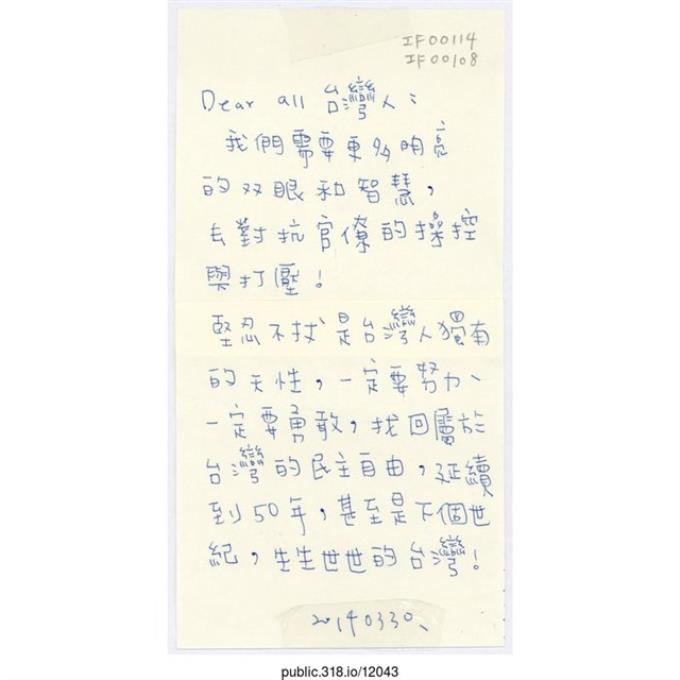 IF00114
IF00108
Dear all 台灣人：
我們需要更多明亮
的双眼和智慧，
去對抗官僚的操控
與打壓！
堅忍不拔是台灣人獨有
的天性，一定要努力、
一定要勇敢，找回屬於
台灣的民主自由，延續
到50年，甚至是下個世
紀，生生世世的台灣！
20140330、
public.318.io/12043